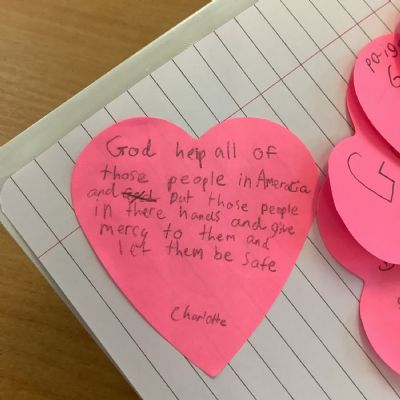 God help all of
those people in Ameracia
and put those people
in there hands and give
mercy to them and
let them be safe
Charlotte